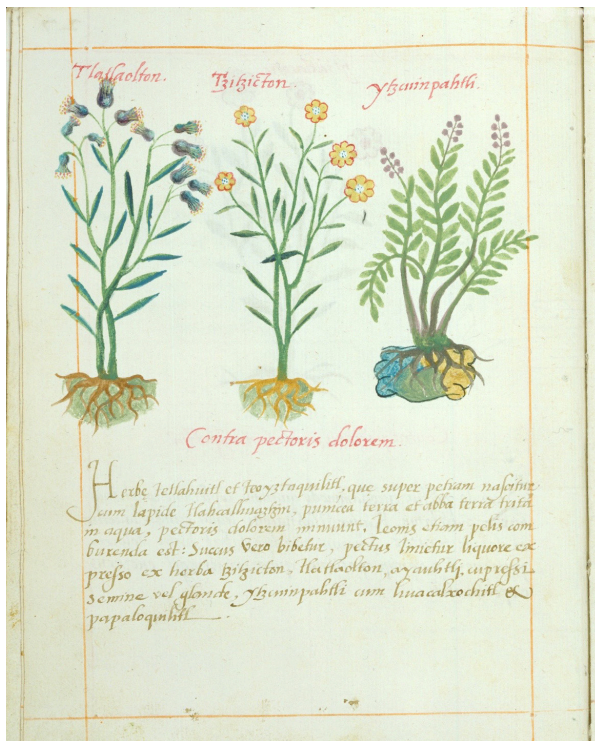 Tlatlaolton. Tzitzicton. ytzcuinpahtli.
Contra pectoris dolorem.
Herbe tetlahuitl et teoyztaquilitl, que super petram nascitur
cum lapide tlahcalhuatzin, punicea terra et abba terra trita
in aqua, pectoris dolorem minuunt, leonis etiam pelis com
burenda est: Succus vero bibetur, pectus linietur liquore ex
presso ex herba tzitzicton, tlatlaolton, ayauhtli, cupressi
semine vel glande, ytzcuinpahtli cum huacalxochitl &
papaloquilitl